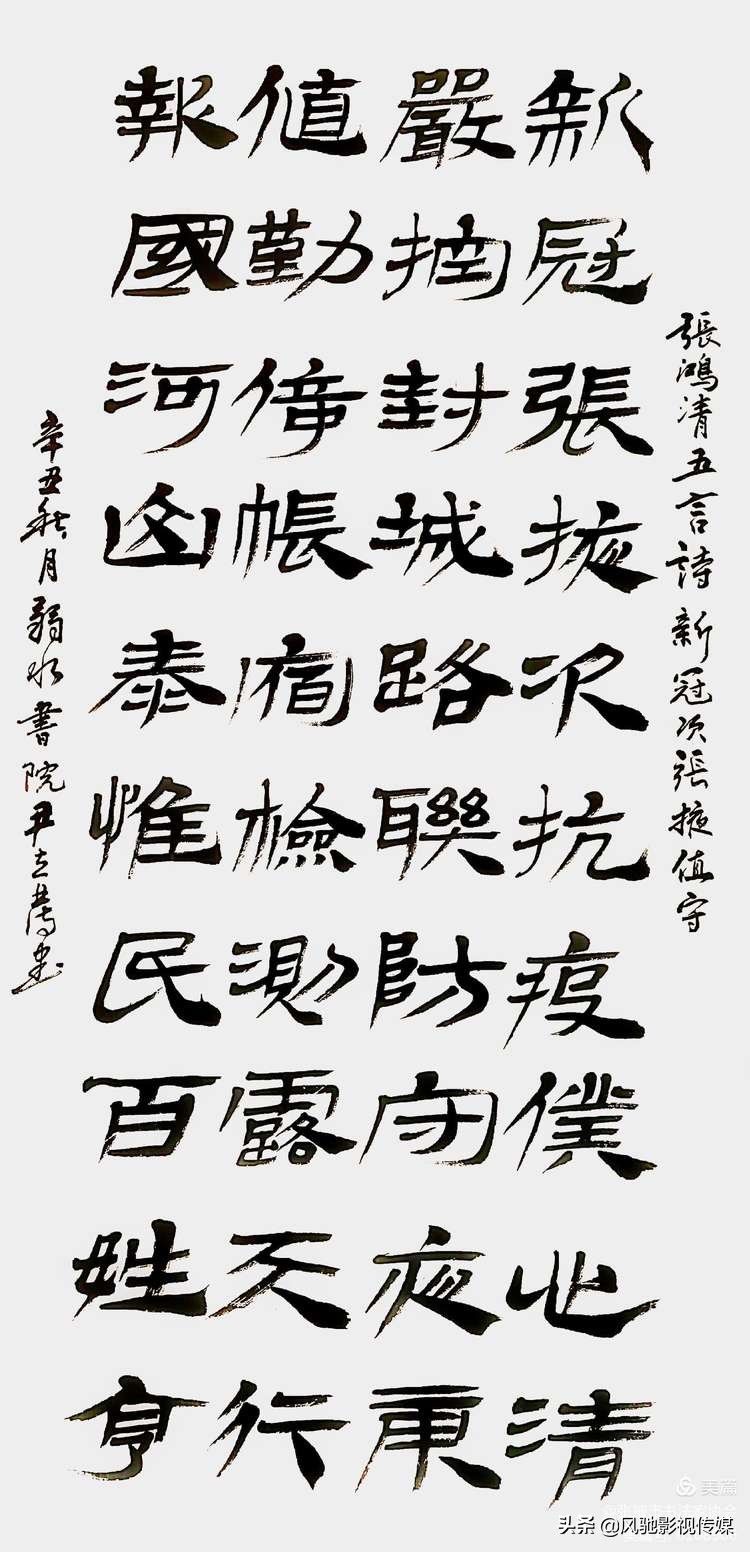 張鴻清五言詩新冠次張掖值守
新冠張掖次抗疫僕心清
嚴控封城路聯防守夜庚
值勤倚帳宿檢測露天行
報國河山泰惟民百姓亨
辛丑秋月弱水書院尹立書
美篇
头条 @风驰影视传媒